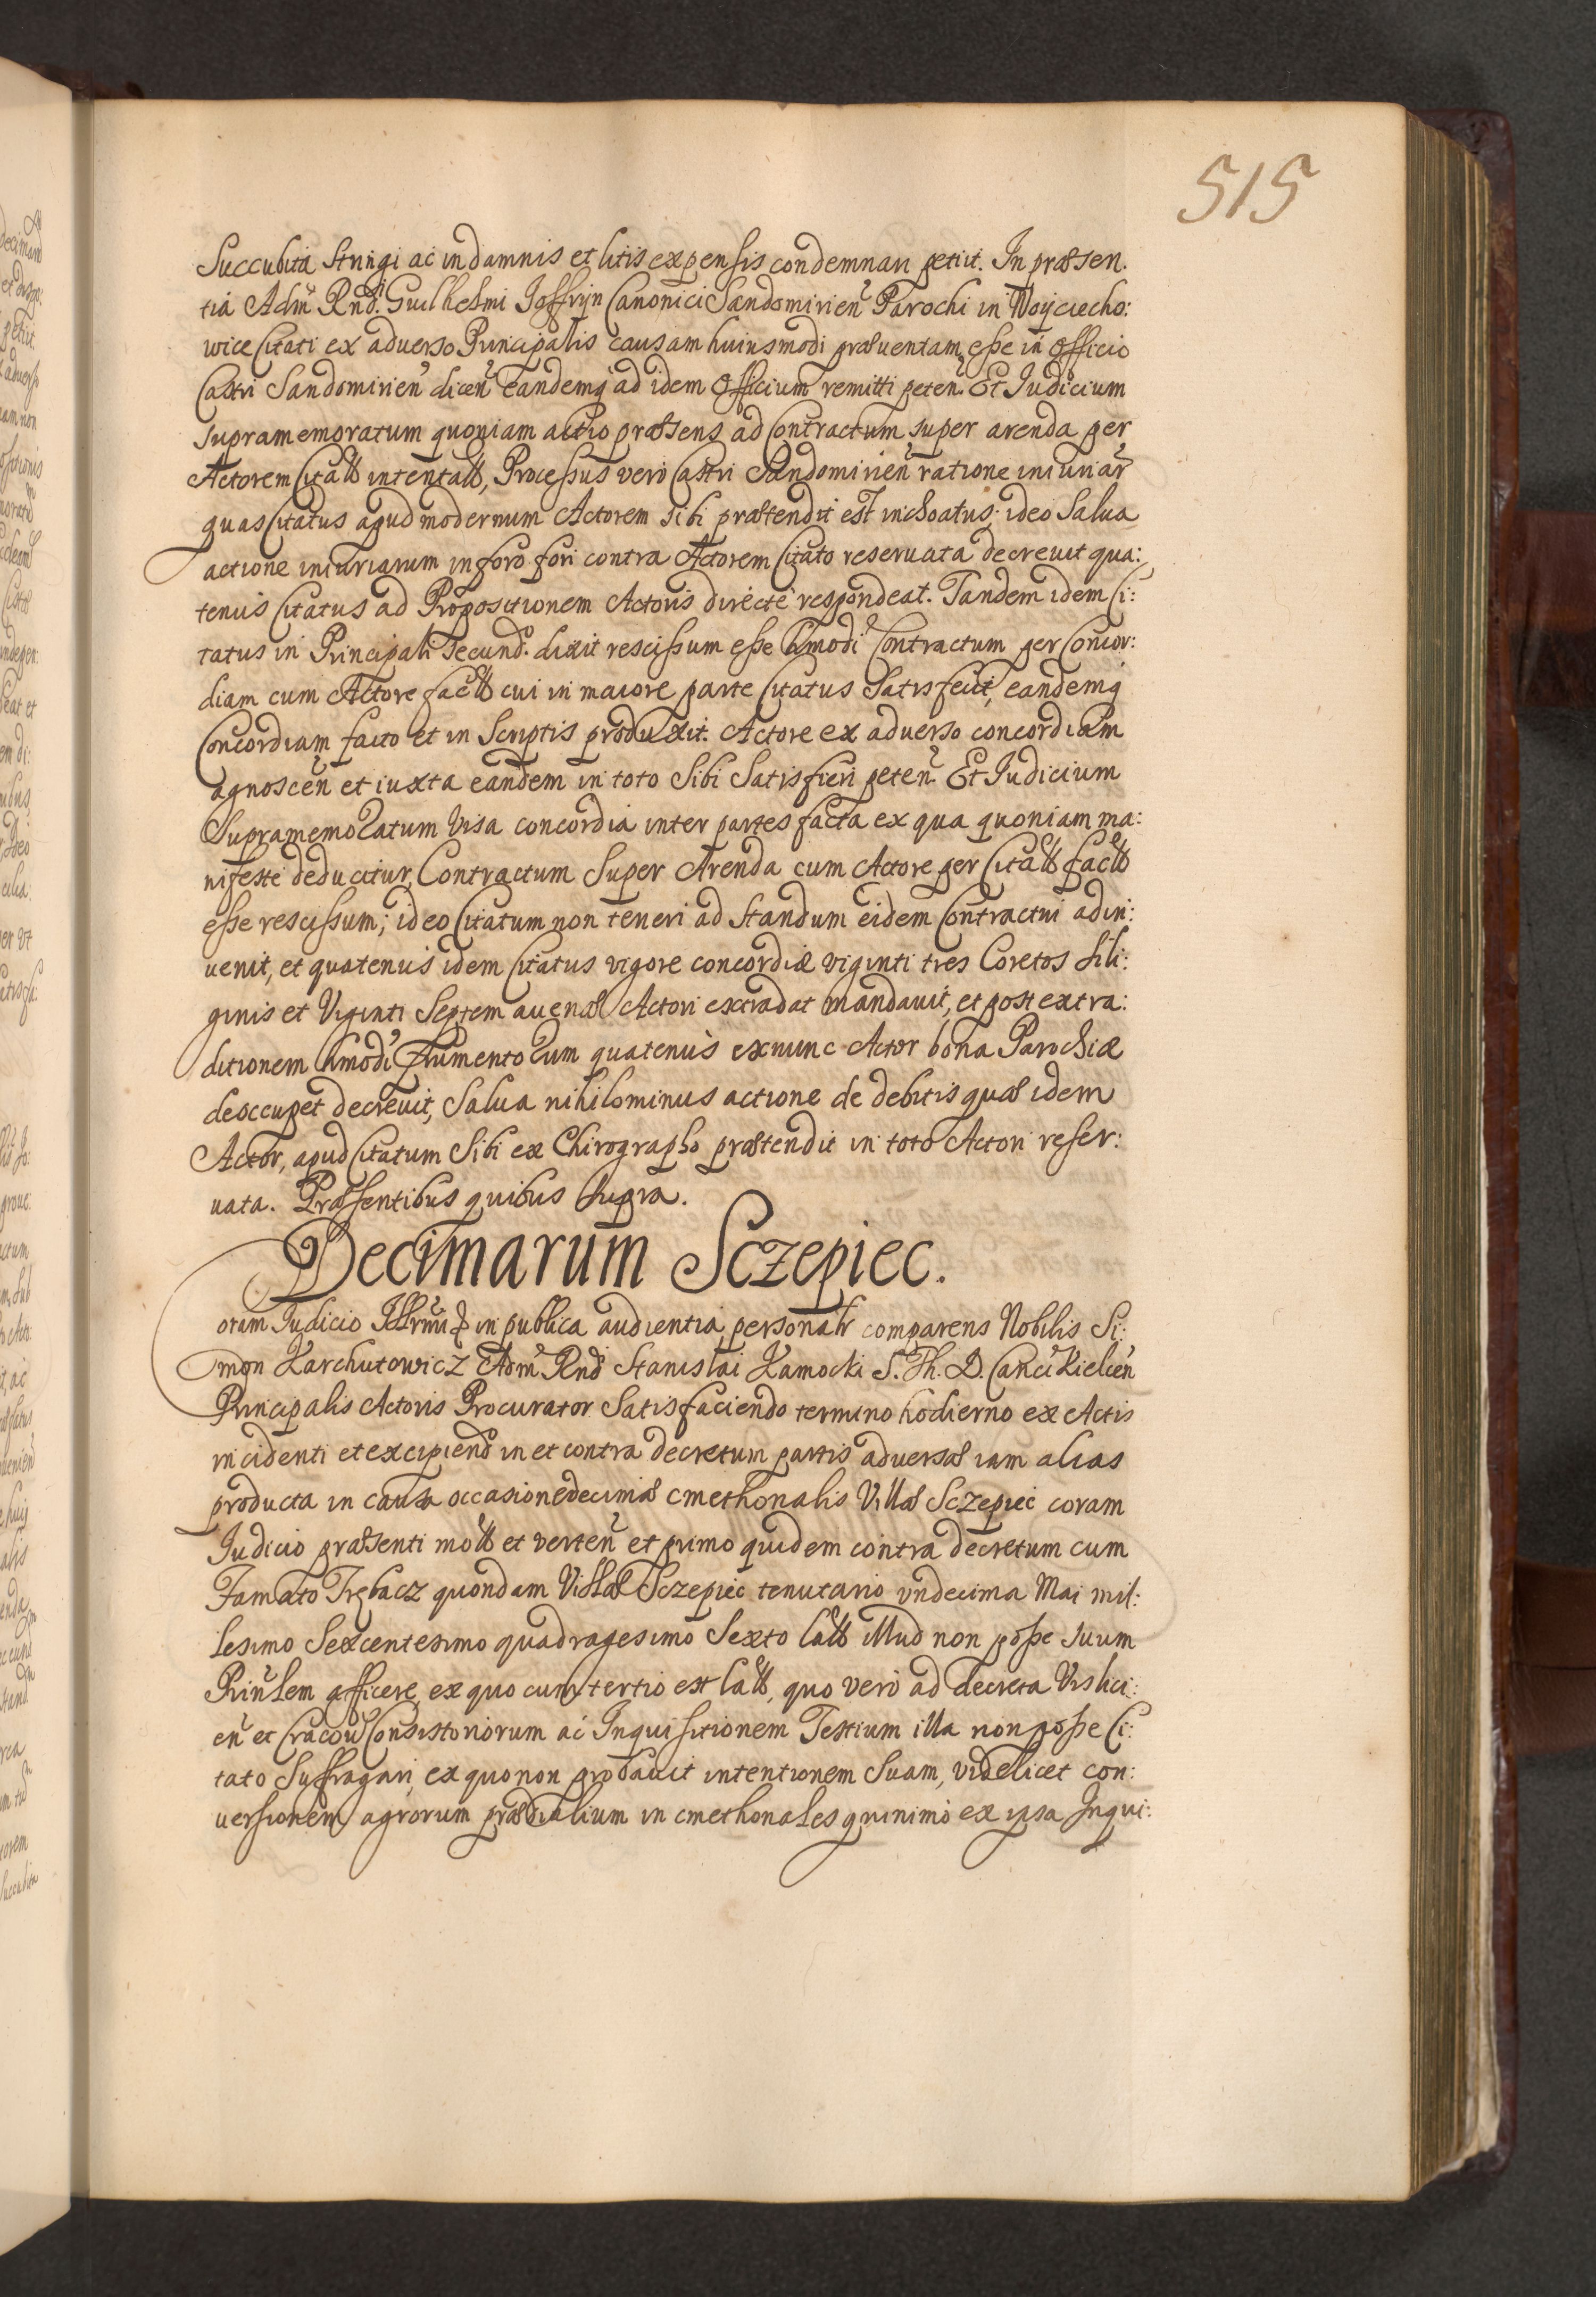 515
Succubita stringi ac in damnis et litis expensis condemnari petiit. In præsen.
tia Adm̃ Rnd̃. Guilhelmi Joffryn Canonici Sandomirien̉ Parochi in Woyciecho:
wice Citati ex aduerso Principalis causam huiusmodi præuentam esse in officio
Castri Sandomirien̉ dicen̉ eandemq̨ ad idem Officium remitti peten̉. Et Iudicium
supramemoratum quoniam actio præsens ad Contractum super arenda per
Actorem Citat̃ intentat̃, Processus vero Castri Sandomirien̉ ratione iniuriar̃
quas Citatus apud modernum Actorem sibi prætendit est inchoatus: ideo Salua
actione iniuriarum in foro fori contra Actorem Citato reseruata decreuit qua:
tenus Citatus ad Propositionem Actoris directe respondeat. Tandem idem Ci:
tatus in Principali secund̃. dixit rescissum esse h̃modi Contractum per Concor:
diam cum Actore fact̃ cui in maiore parte Citatus Satisfecit, eandemq̨
Concordiam facto et in Scriptis produxit. Actore ex aduerso concordiam
agnoscen̉ et iuxta eandem in toto Sibi Satisfieri peten̉. Et Iudicium
Supramemoratum Visa concordia inter partes facta ex qua quoniam ma:
nifeste deducitur, Contractum Super Arenda cum Actore per Citat̃ fact̃
esse rescissum; ideo Citatum non teneri ad standum eidem Contractui adin:
uenit, et quatenus idem Citatus vigore concordiæ viginti tres Coretos sili:
ginis et Viginti Septem auenæ Actori extradat mandauit, et post extra:
ditionem h̃modi frumentorum quatenus exnunc Actor bona Parochiæ
deoccupet decreuit, Salua nihilominus actione de debitis quæ idem
Actor, apud Citatum Sibi ex Chirographo prætendit in toto Actori reser:
uata. Præsentibus quibus Supra.
Decimarum Sczepiec.
Coram Iudicio in publica audientia personalr̃ comparens Nobilis Si:
mon Karchutowicz Adm̃ Rnd̃ Stanislai Kamocki S. Th. D. Canci Kielcen̉
Principalis Actoris Procurator Satisfaciendo termino hodierno ex Actis
incidenti et excipiend̃ in et contra decretum partis aduersæ iam alias
producta in causa occasione decimæ cmethonalis Villæ Sczepiec coram
Iudicio præsenti mot̃ et verten̉ et primo quidem contra decretum cum
Famato Trębacz quondam Villæ Sczepiec tenutario vndecima Mai mil:
lesimo Sexcentesimo quadragesimo Sexto lat̃ illud non posse suum
Prin̉lem afficere, ex quo cum tertio est lat̃, quo vero ad decreta Vislici:
en̉ et Cracoủ Consistoriorum ac Inquisitionem Testium illa non posse Ci:
tato Suffragari, ex quo non probauit intentionem Suam, videlicet con:
uersionem agrorum prædialium in cmethonales quinimo ex ipsa Inqui: